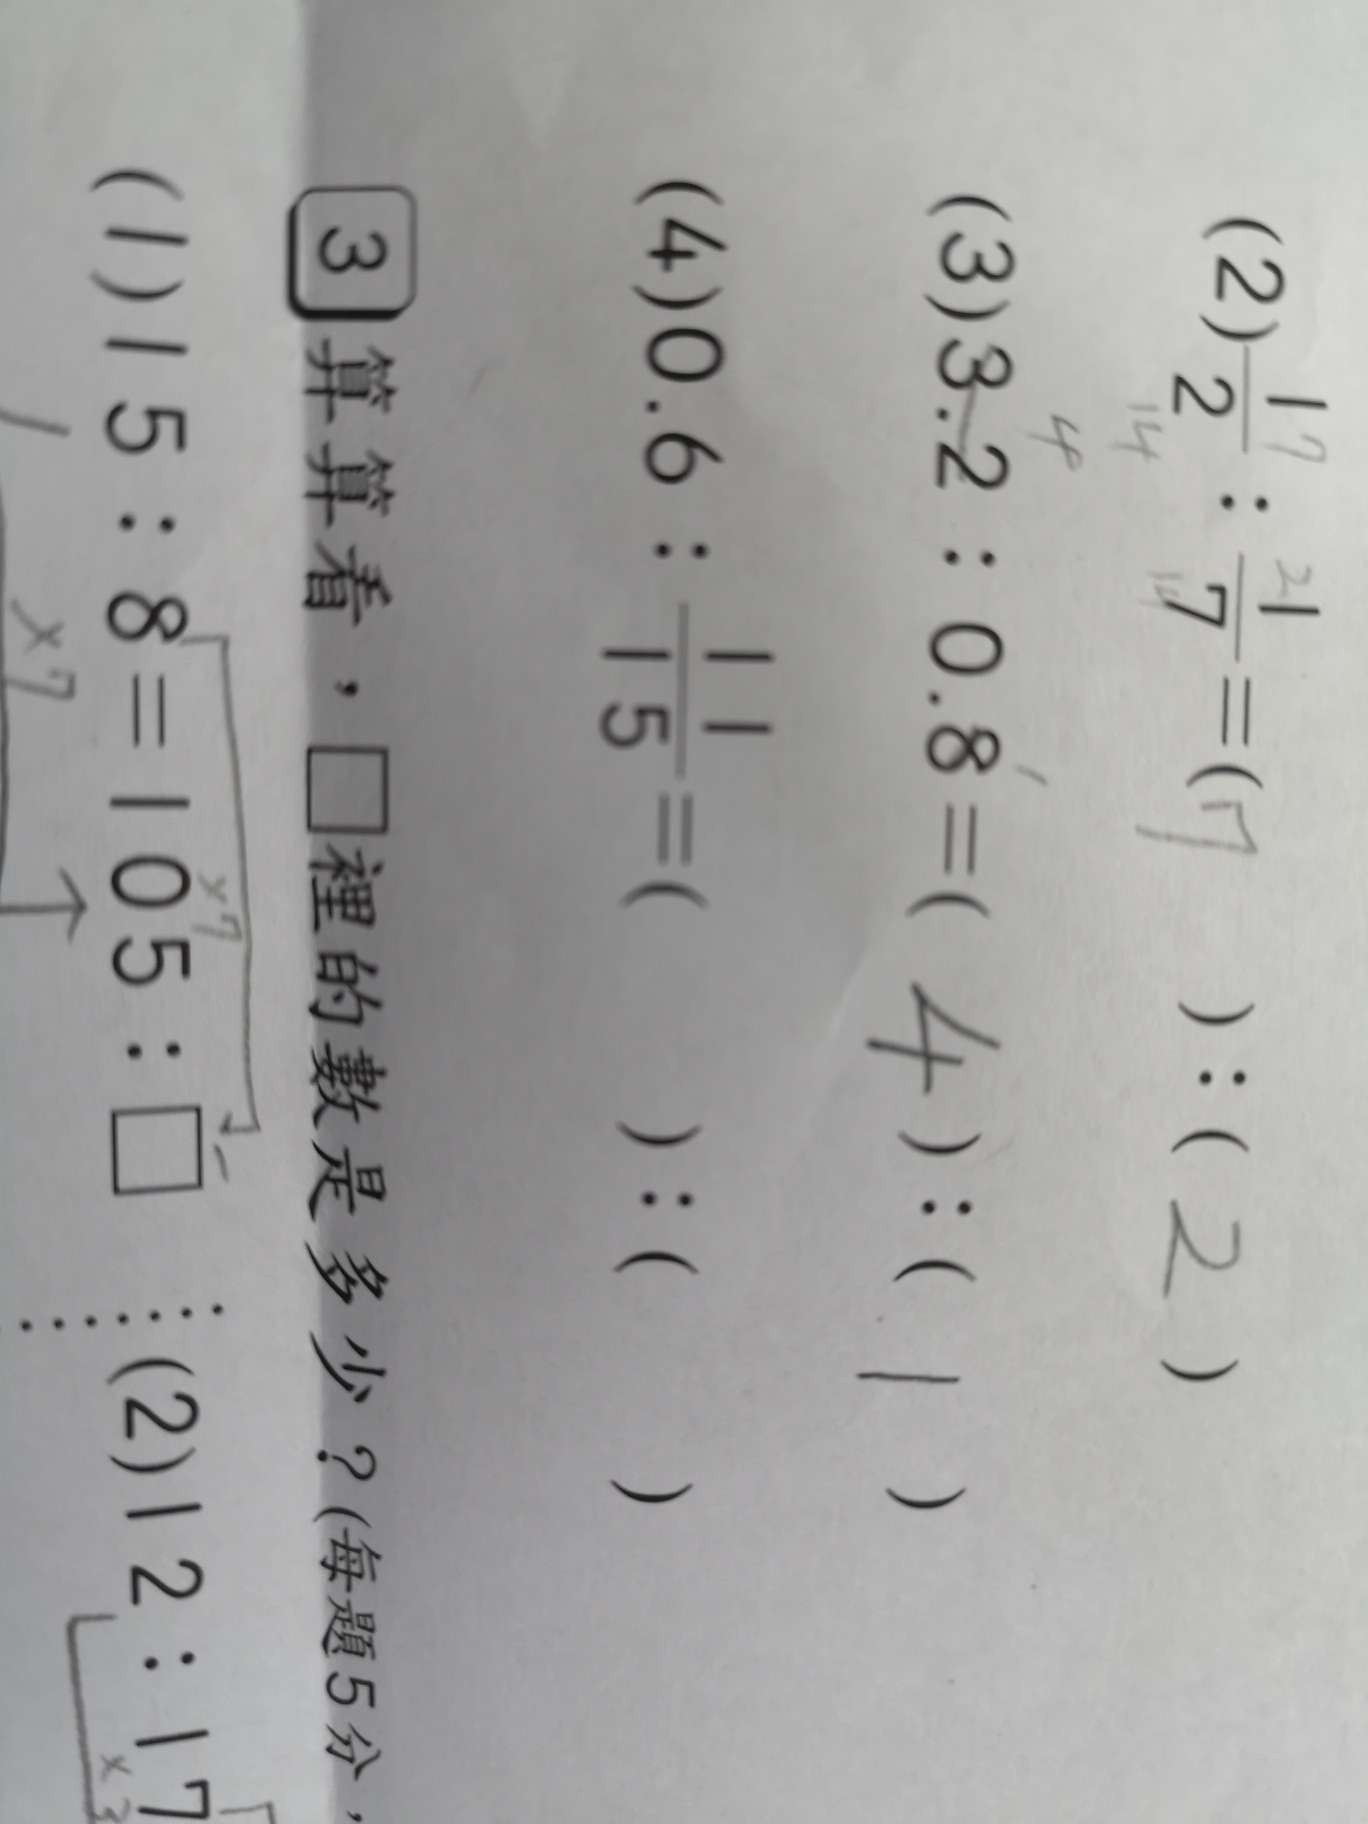 (2) 1/2 : 1/7 = ( 7 ) : ( 2 )
7 2
14 14
4 1
(3) 3.2 : 0.8 = ( 4 ) : ( 1 )
(4) 0.6 : 11/15 = ( ) : ( )
3 算算看，□裡的數是多少？(每題5分，
×7 ×3
(1) 15 : 8 = 105 : □ (2) 12 : 17
×7